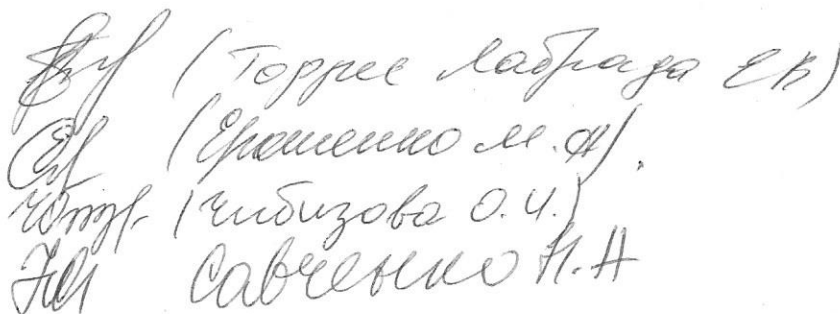 (Торрес Лабрада Е В)
(Ерошенко М. А).
(Чибизова О. И.)
Савченко Н. А